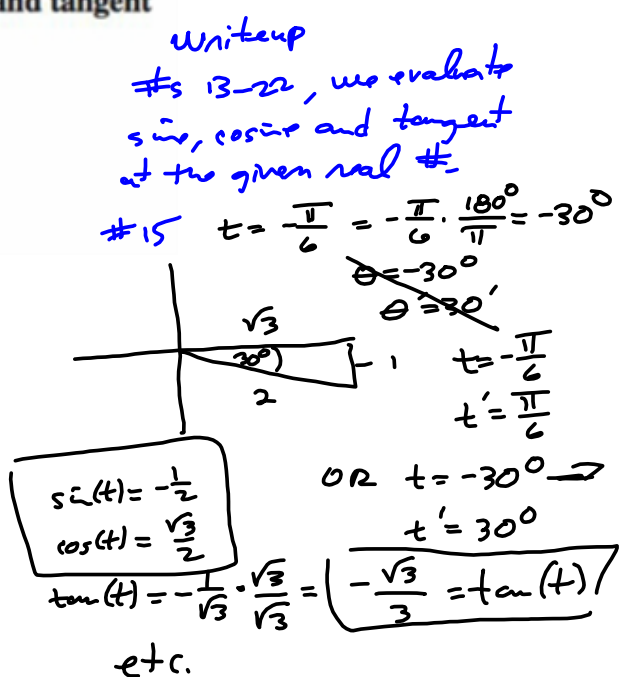 and tangent
Writeup
#s 13-22, we evaluate
sine, cosine and tangent
at the given real #.
#15 t = -π/6 = -π/6 · 180°/π = -30°
θ = -30°
θ' = 30'
√3
30°
-1
2
t = -π/6
t' = π/6
sin(t) = -1/2
cos(t) = √3/2
OR t = -30° →
t' = 30°
tan(t) = -1/√3 · √3/√3 = -√3/3 = tan(t)
etc.